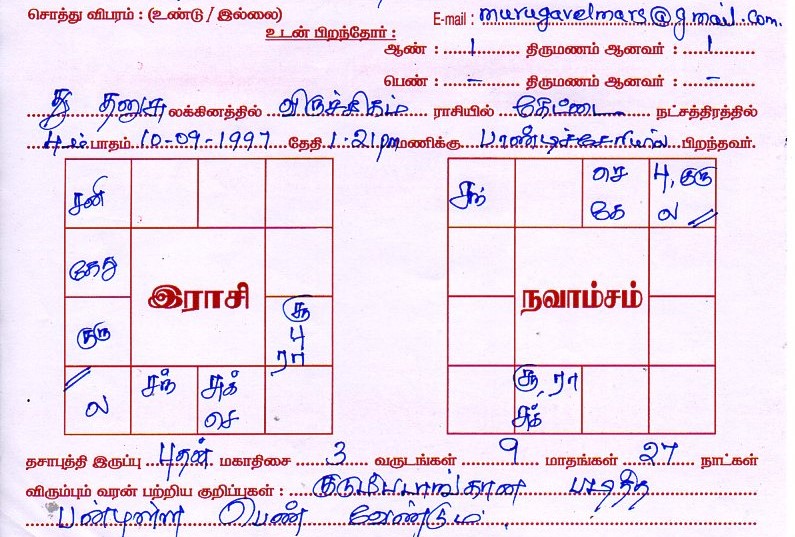 சொத்து விபரம் : (உண்டு / இல்லை)
E-mail : murugavelmars@gmail.com.
உடன் பிறந்தோர் :
ஆண் : 1 திருமணம் ஆனவர் : 1
பெண் : - திருமணம் ஆனவர் : -
தனுசு லக்கினத்தில் விருச்சிகம் ராசியில் கேட்டை நட்சத்திரத்தில்
4ம் பாதம் 10-09-1997 தேதி 1.21pm மணிக்கு பாண்டிச்சேரியில் பிறந்தவர்.
சனி
கேது
குரு
ல
சந்
சுக்
செ
சூ
பு
ரா
இராசி
சந்
செ
கே
பு, குரு
ல
நவாம்சம்
சூ ரா
சுக்
தசாபுத்தி இருப்பு புதன் மகாதிசை 3 வருடங்கள் 9 மாதங்கள் 27 நாட்கள்
விரும்பும் வரன் பற்றிய குறிப்புகள் : குடும்பபாங்கான படித்த
பண்புள்ள பெண் வேண்டும்.